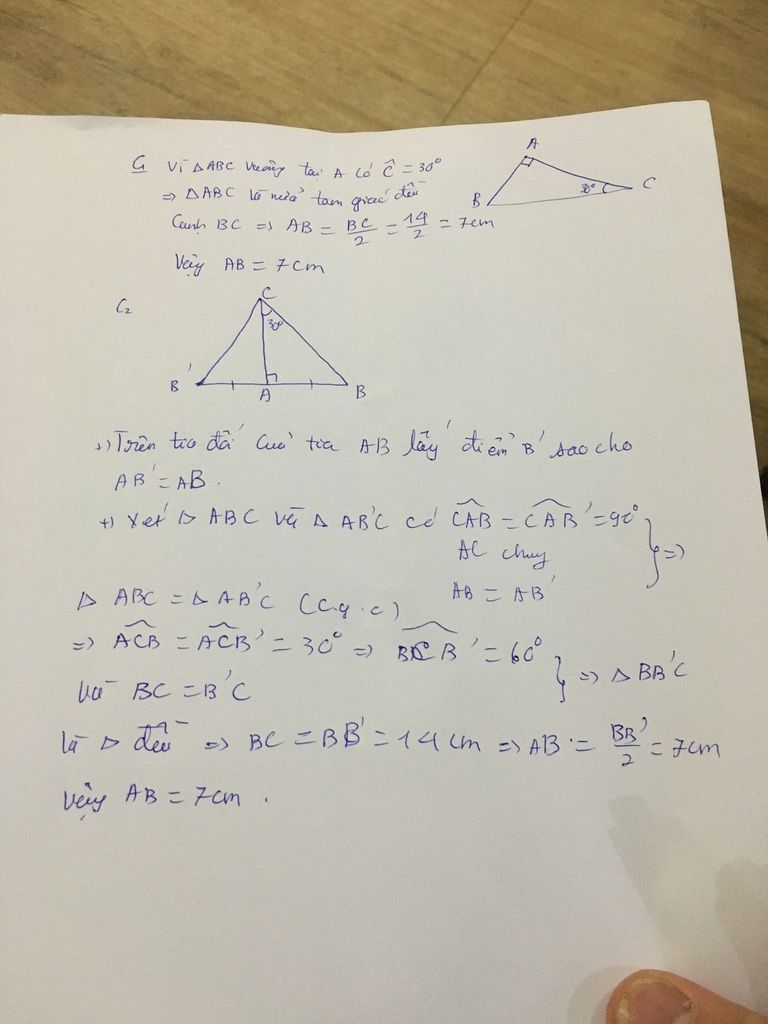 C₁ Vì △ABC vuông tại A có Ĉ = 30°
⇒ △ABC là nửa tam giác đều
Cạnh BC ⇒ AB = BC/2 = 14/2 = 7cm
Vậy AB = 7cm
A
B
30°
C
C₂
C
30°
B'
A
B
+) Trên tia đối của tia AB lấy điểm B' sao cho
AB' = AB.
+) Xét △ ABC và △ AB'C có CAB = CAB' = 90°
AC chung
AB = AB'
} ⇒
△ ABC = △ AB'C (c.g.c)
⇒ ACB = ACB' = 30° ⇒ BCB' = 60°
và BC = B'C
} ⇒ △ BB'C
là △ đều ⇒ BC = BB' = 14cm ⇒ AB = BB'/2 = 7cm
Vậy AB = 7cm.